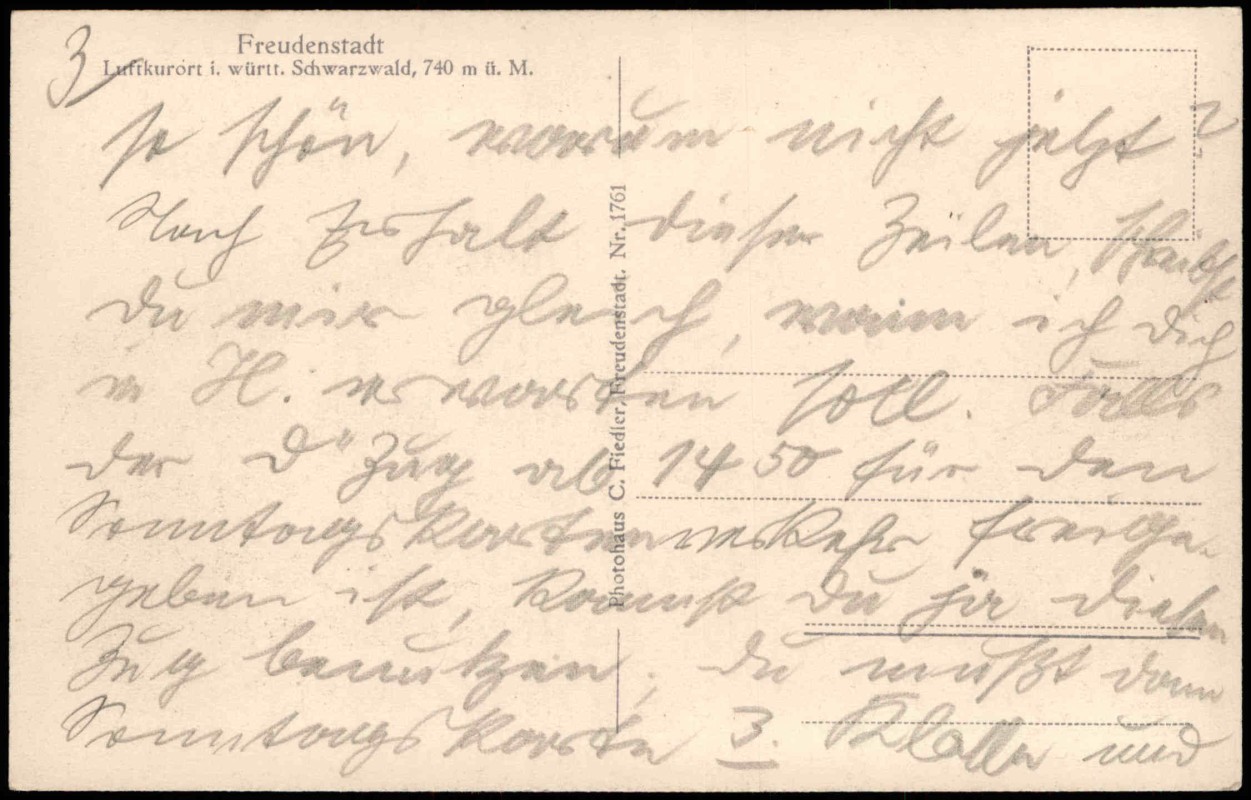 3)
Freudenstadt
Luftkurort i. württ. Schwarzwald, 740 m ü. M.
so schön, warum nicht jetzt?
Nach Erhalt dieser Zeilen, schreibst
Du mir gleich, wann ich Dich
in H. erwarten soll. Falls
der D" Zug ab 14 50 für den
Sonntagskartenverkehr freige-
geben ist, kannst Du ja diesen
Zug benutzen, Du mußt dann
Sonntagskarte 3. Klasse und
Photohaus C. Fiedler, Freudenstadt. Nr. 1761